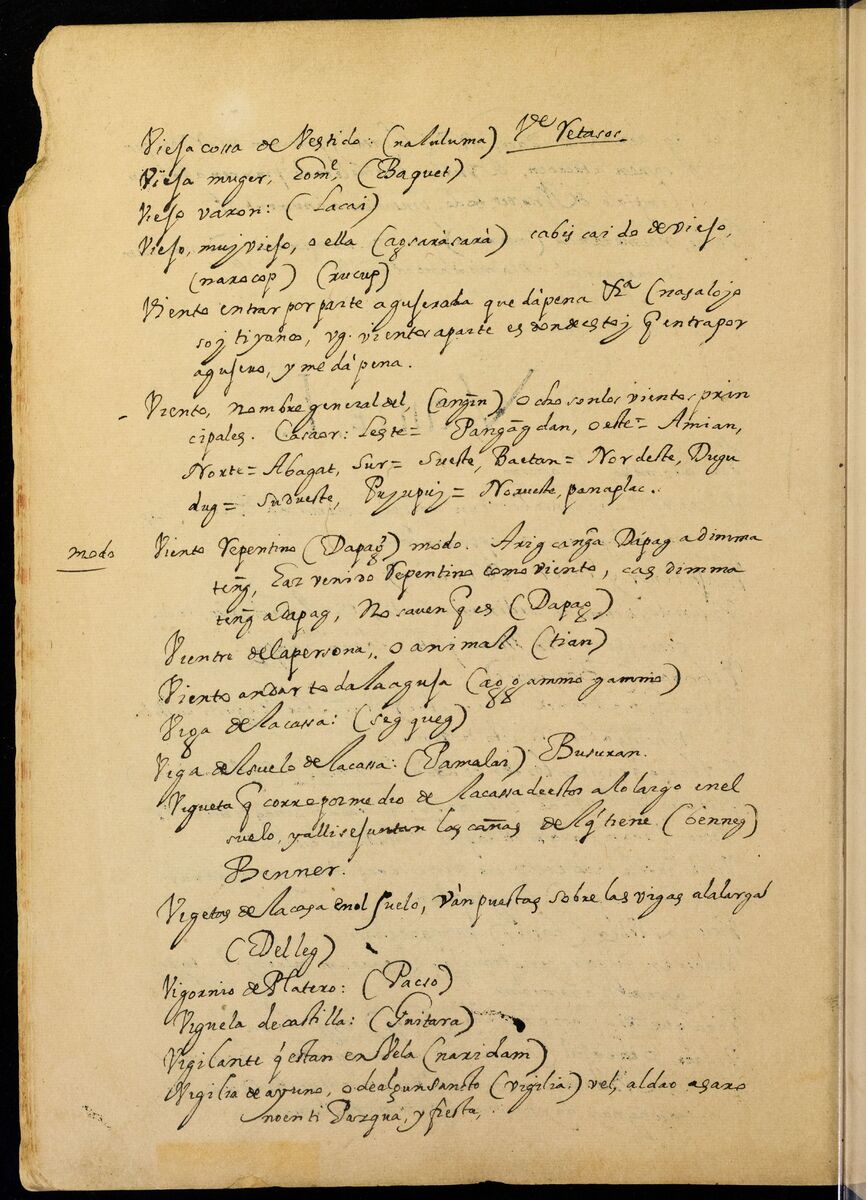 Viesa cossa de Vestido: (naluluma) Vde Retasos
Viesa muger, homᵉ, (Baquet)
Vieso varon: (Lacai)
Vieso, muj vieso, o ella (agsaràsarà) cabis caido de vieso,
(narocop) (rucup)
Viento entrar por parte aguserada que dá pena Vᵃ (nasalojo
soj tiyanco, vg. viento aparte es donde estoj q̃ entra por
agusero, y me dá pena.
Viento, nombre general del, (angin) ocho son los vientos prin
cipales. Casaor: Leste= Pangãgdan, oeste= Amian,
Norte= Abagat, sur= sueste, Baetan= Nordeste, Dugu
dug= sudueste, Pujupuj= Norueste, panaplac.
modo Viento Repentino (Dapag) modo. Arig canga Dápag a dimma
teng, haz venido Repentino como viento, cas dimma
teng a dapag, No saven q̃ es (Dapag)
Vientre de la persona, o animal: (tian)
Viento andar toda la agusa (aggammogammo)
Viga de la cassa: (seg queg)
Viga del suelo de la cassa: (Pamalai) Busuran.
Vigueta q̃ corre por medio de la cassa de estos a lo largo en el
suelo, y alli se juntan las cañas del q̃ tiene (benneg)
Benner.
Vigetas de la casa en el suelo, ván puestas sobre las vigas a la larga
(Delleg)
Vigornio de Platero: (Pacso)
Viguela de castilla: (Guitara)
Vigilante q̃ estan en Vela (naridam)
Vigilia de ayuno, o de algun sancto (vigilia:) vel, aldao a saro
noenti Pazqua, y fiesta,